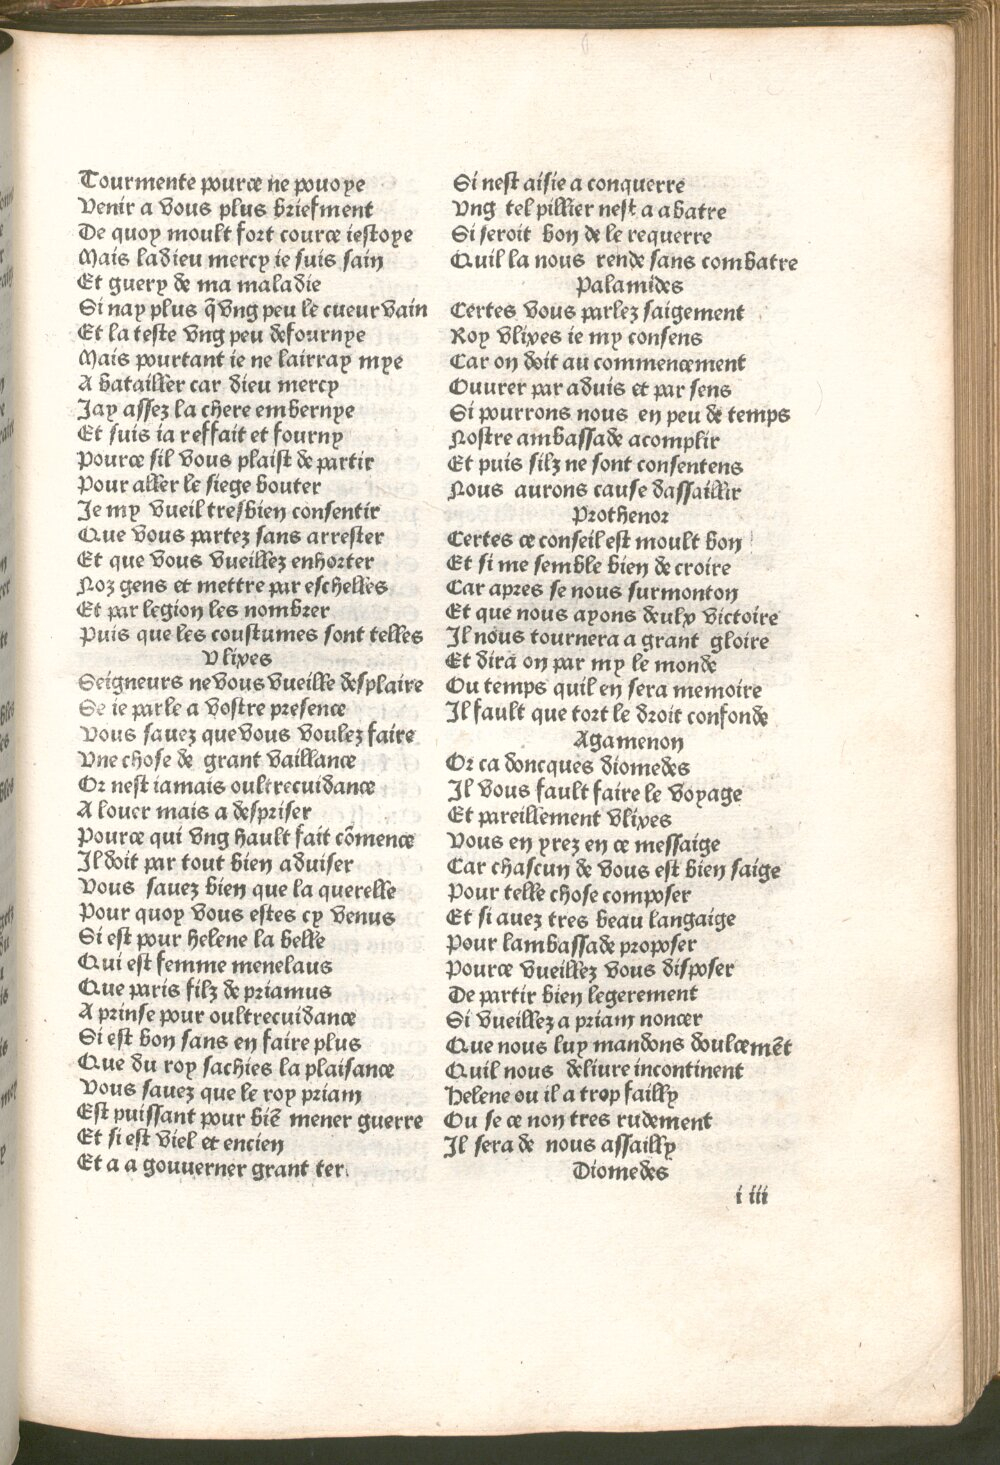 Tourmente pource ne pouoye
Venir a vous plus briefment
De quoy moult fort cource iestoye
Mais ladieu mercy ie suis sain
Et guery de ma maladie
Si nay plus q̃ vng peu le cueur vain
Et la teste vng peu defournye
Mais pourtant ie ne lairray mye
A batailler car dieu mercy
Jay assez la chere embernye
Et suis ia reffait et fourny
Pource sil vous plaist de partir
Pour aller le siege bouter
Je my vueil tresbien consentir
Que vous partez sans arrester
Et que vous vueillez enhorter
Noz gens et mettre par eschelles
Et par legion les nombrer
Puis que les coustumes sont telles
Vlixes
Seigneurs ne vous vueille desplaire
Se ie parle a vostre presence
Vous sauez que vous voulez faire
Vne chose de grant vaillance
Or nest iamais oultrecuidance
A louer mais a despriser
Pource qui vng hault fait cõmence
Il doit par tout bien aduiser
Vous sauez bien que la querelle
Pour quoy vous estes cy venus
Si est pour helene la belle
Qui est femme menelaus
Que paris filz de priamus
A prinse pour oultrecuidance
Si est bon sans en faire plus
Que du roy sachies la plaisance
Vous sauez que le roy priam
Est puissant pour biẽ mener guerre
Et si est viel et encien
Et a a gouuerner grant ter
Si nest aisie a conquerre
Vng tel pillier nest a abatre
Si seroit bon de le requerre
Quil la nous rende sans combatre
Palamides
Certes vous parlez saigement
Roy vlixes ie my consens
Car on doit au commencement
Ouurer par aduis et par sens
Si pourrons nous en peu de temps
Nostre ambassade acomplir
Et puis silz ne sont consentens
Nous aurons cause dassaillir
Prothenor
Certes ce conseil est moult bon
Et si me semble bien de croire
Car apres se nous surmonton
Et que nous ayons deulx victoire
Il nous tournera a grant gloire
Et dira on par my le monde
Ou temps quil en sera memoire
Il fault que tort le droit confonde
Agamenon
Or ca doncques diomedes
Il vous fault faire le voyage
Et pareillement vlixes
Vous en yrez en ce messaige
Car chascun de vous est bien saige
Pour telle chose composer
Et si auez tres beau langaige
Pour lambassade proposer
Pource vueillez vous disposer
De partir bien legerement
Si vueillez a priam noncer
Que nous luy mandons doulcemẽt
Quil nous deliure incontinent
Helene ou il a trop failly
Ou se ce non tres rudement
Il sera de nous assailly
Diomedes
i iii